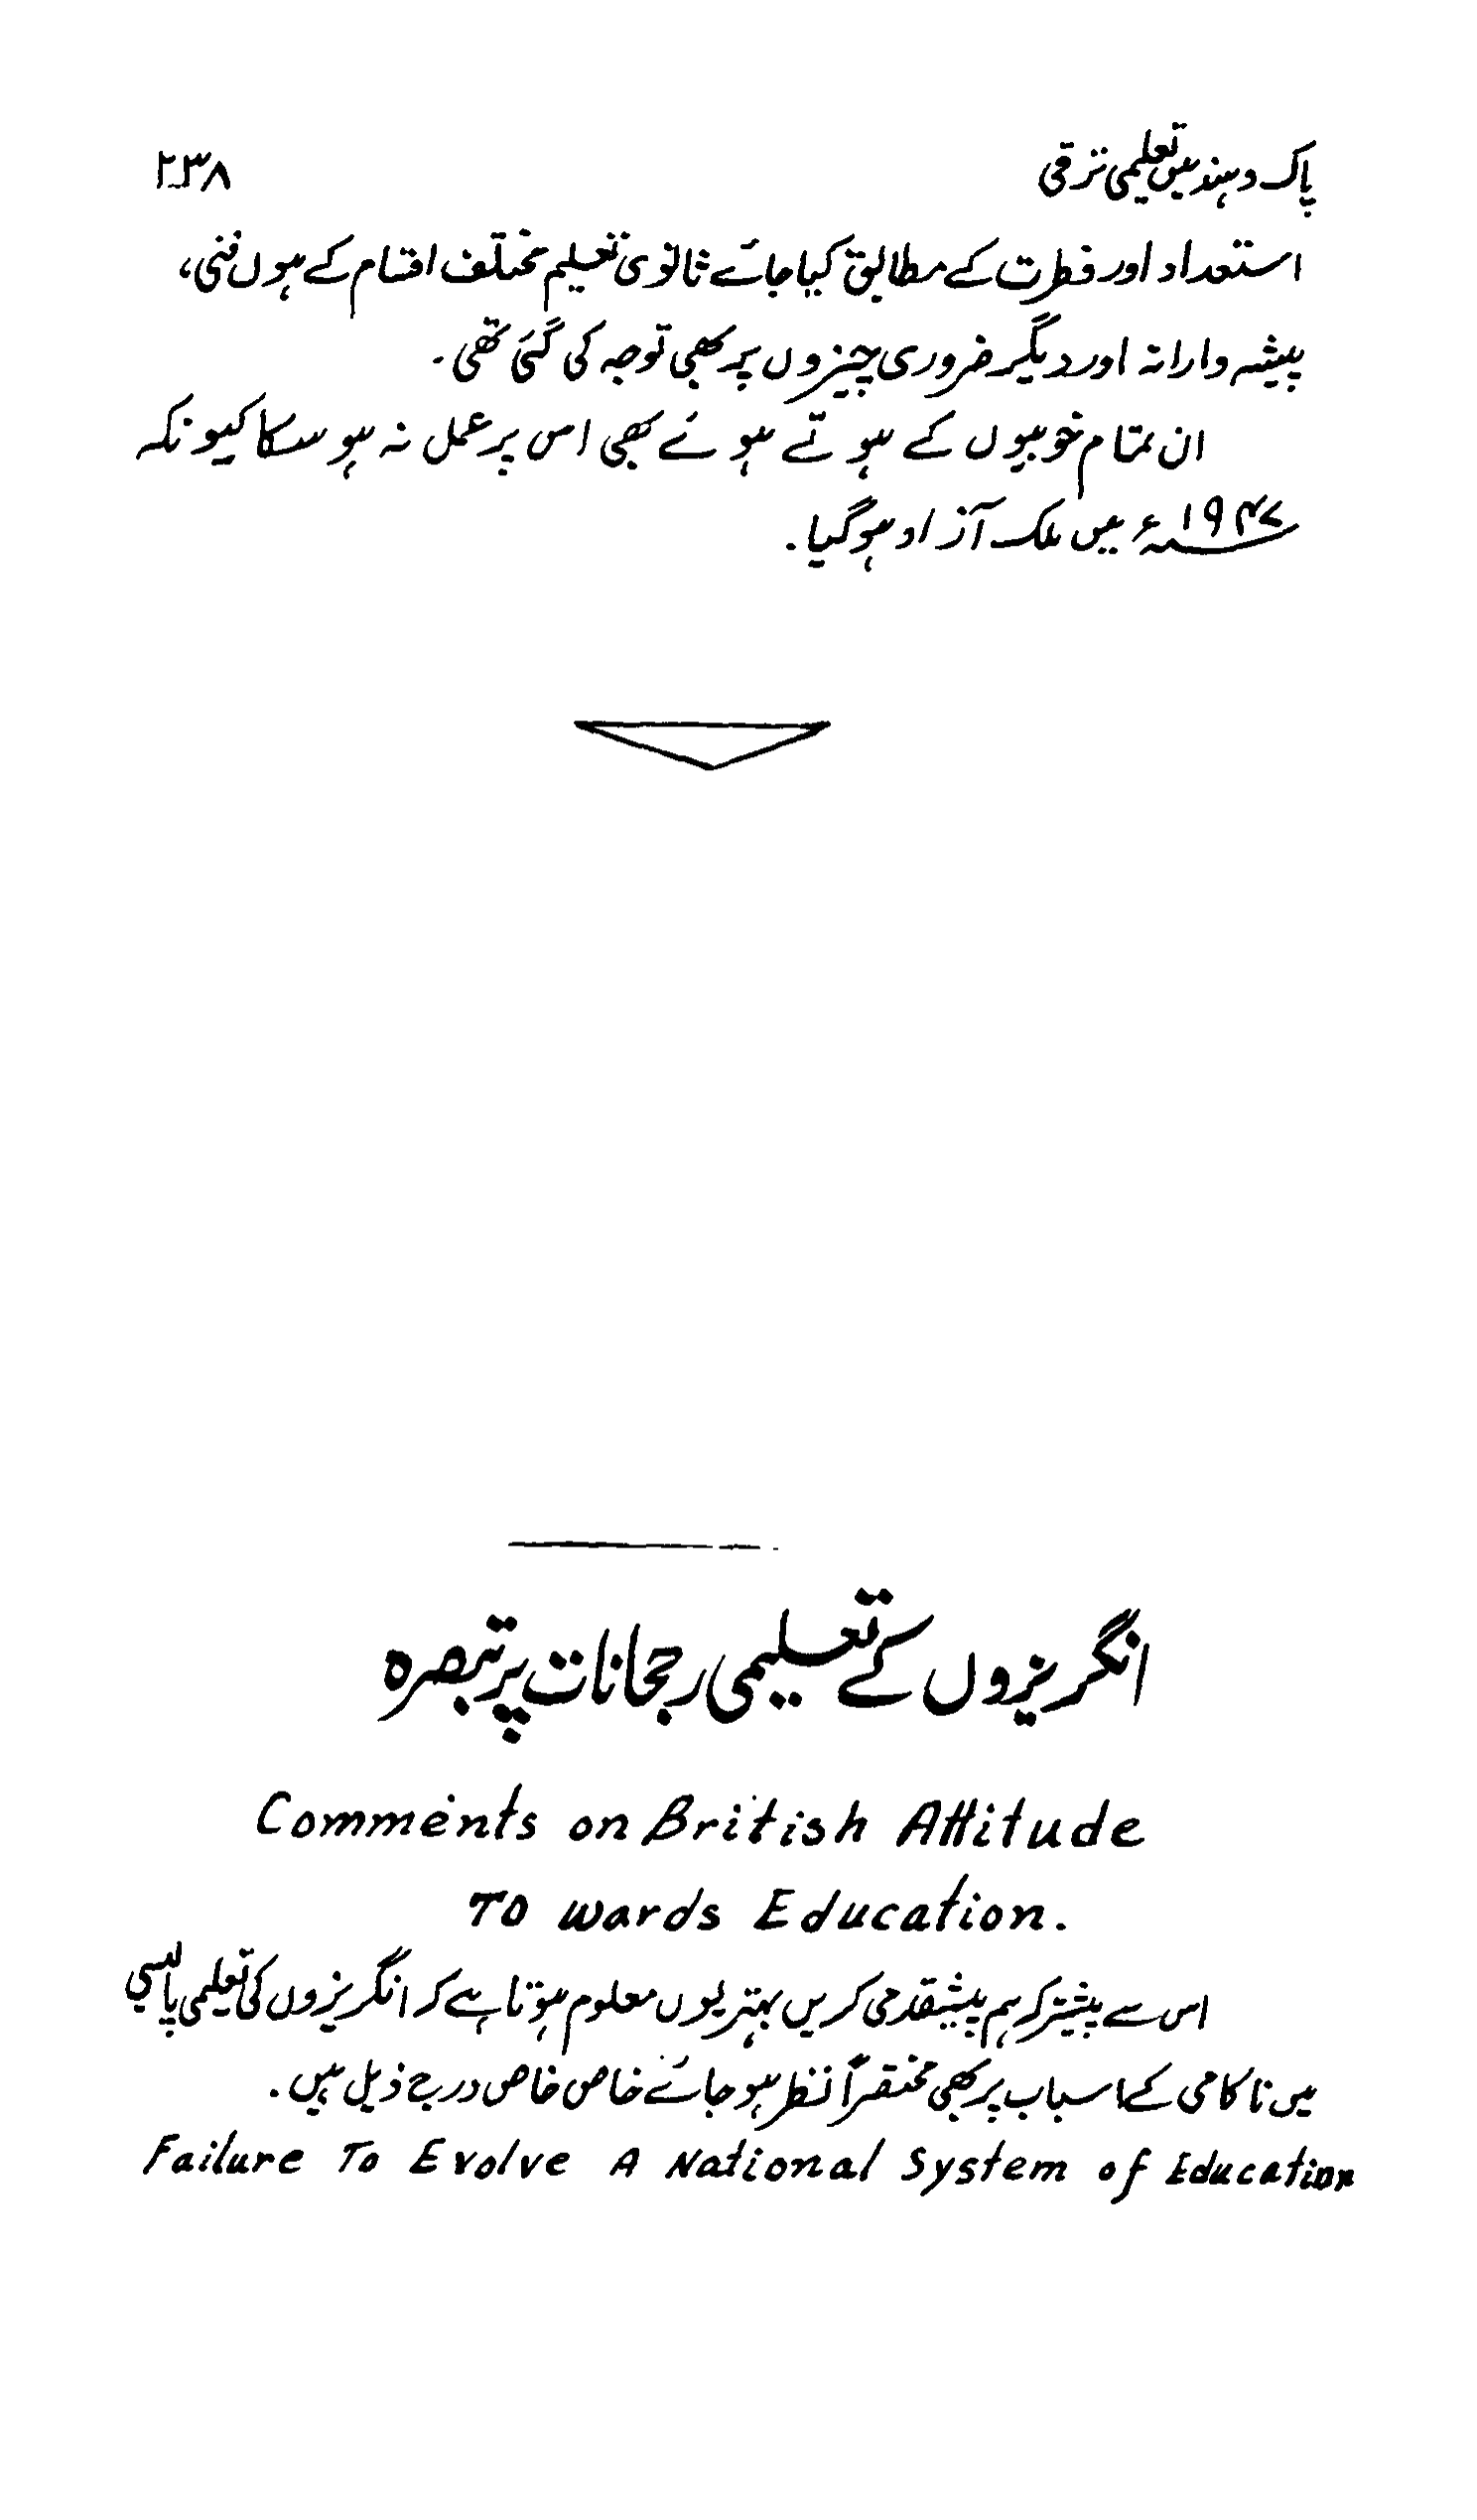 پاک و ہند میں تعلیمی ترقی ۲۳۸
استعداد اور فطرت کے مطابق کیا جائے ثانوی تعلیم مختلف اقسام کے ہوں فنی،
پیشہ وارانہ اور دیگر ضروری چیزوں پر بھی توجہ کی گئی تھی۔
ان تمام خوبیوں کے ہوتے ہوئے بھی اس پر عمل نہ ہو سکا کیونکہ
۱۹۴۷ء میں ملک آزاد ہو گیا۔
انگریزوں کے تعلیمی رجحانات پر تبصرہ
Comments on British Attitude
To wards Education.
اس سے پیشتر کہ ہم پیشقدمی کریں بہتر یوں معلوم ہوتا ہے کہ انگریزوں کی تعلیمی پالیسی
میں ناکامی کے اسباب پر بھی مختصراً نظر ہو جائے خاص خاص درج ذیل ہیں۔
Failure To Evolve A National System of Education